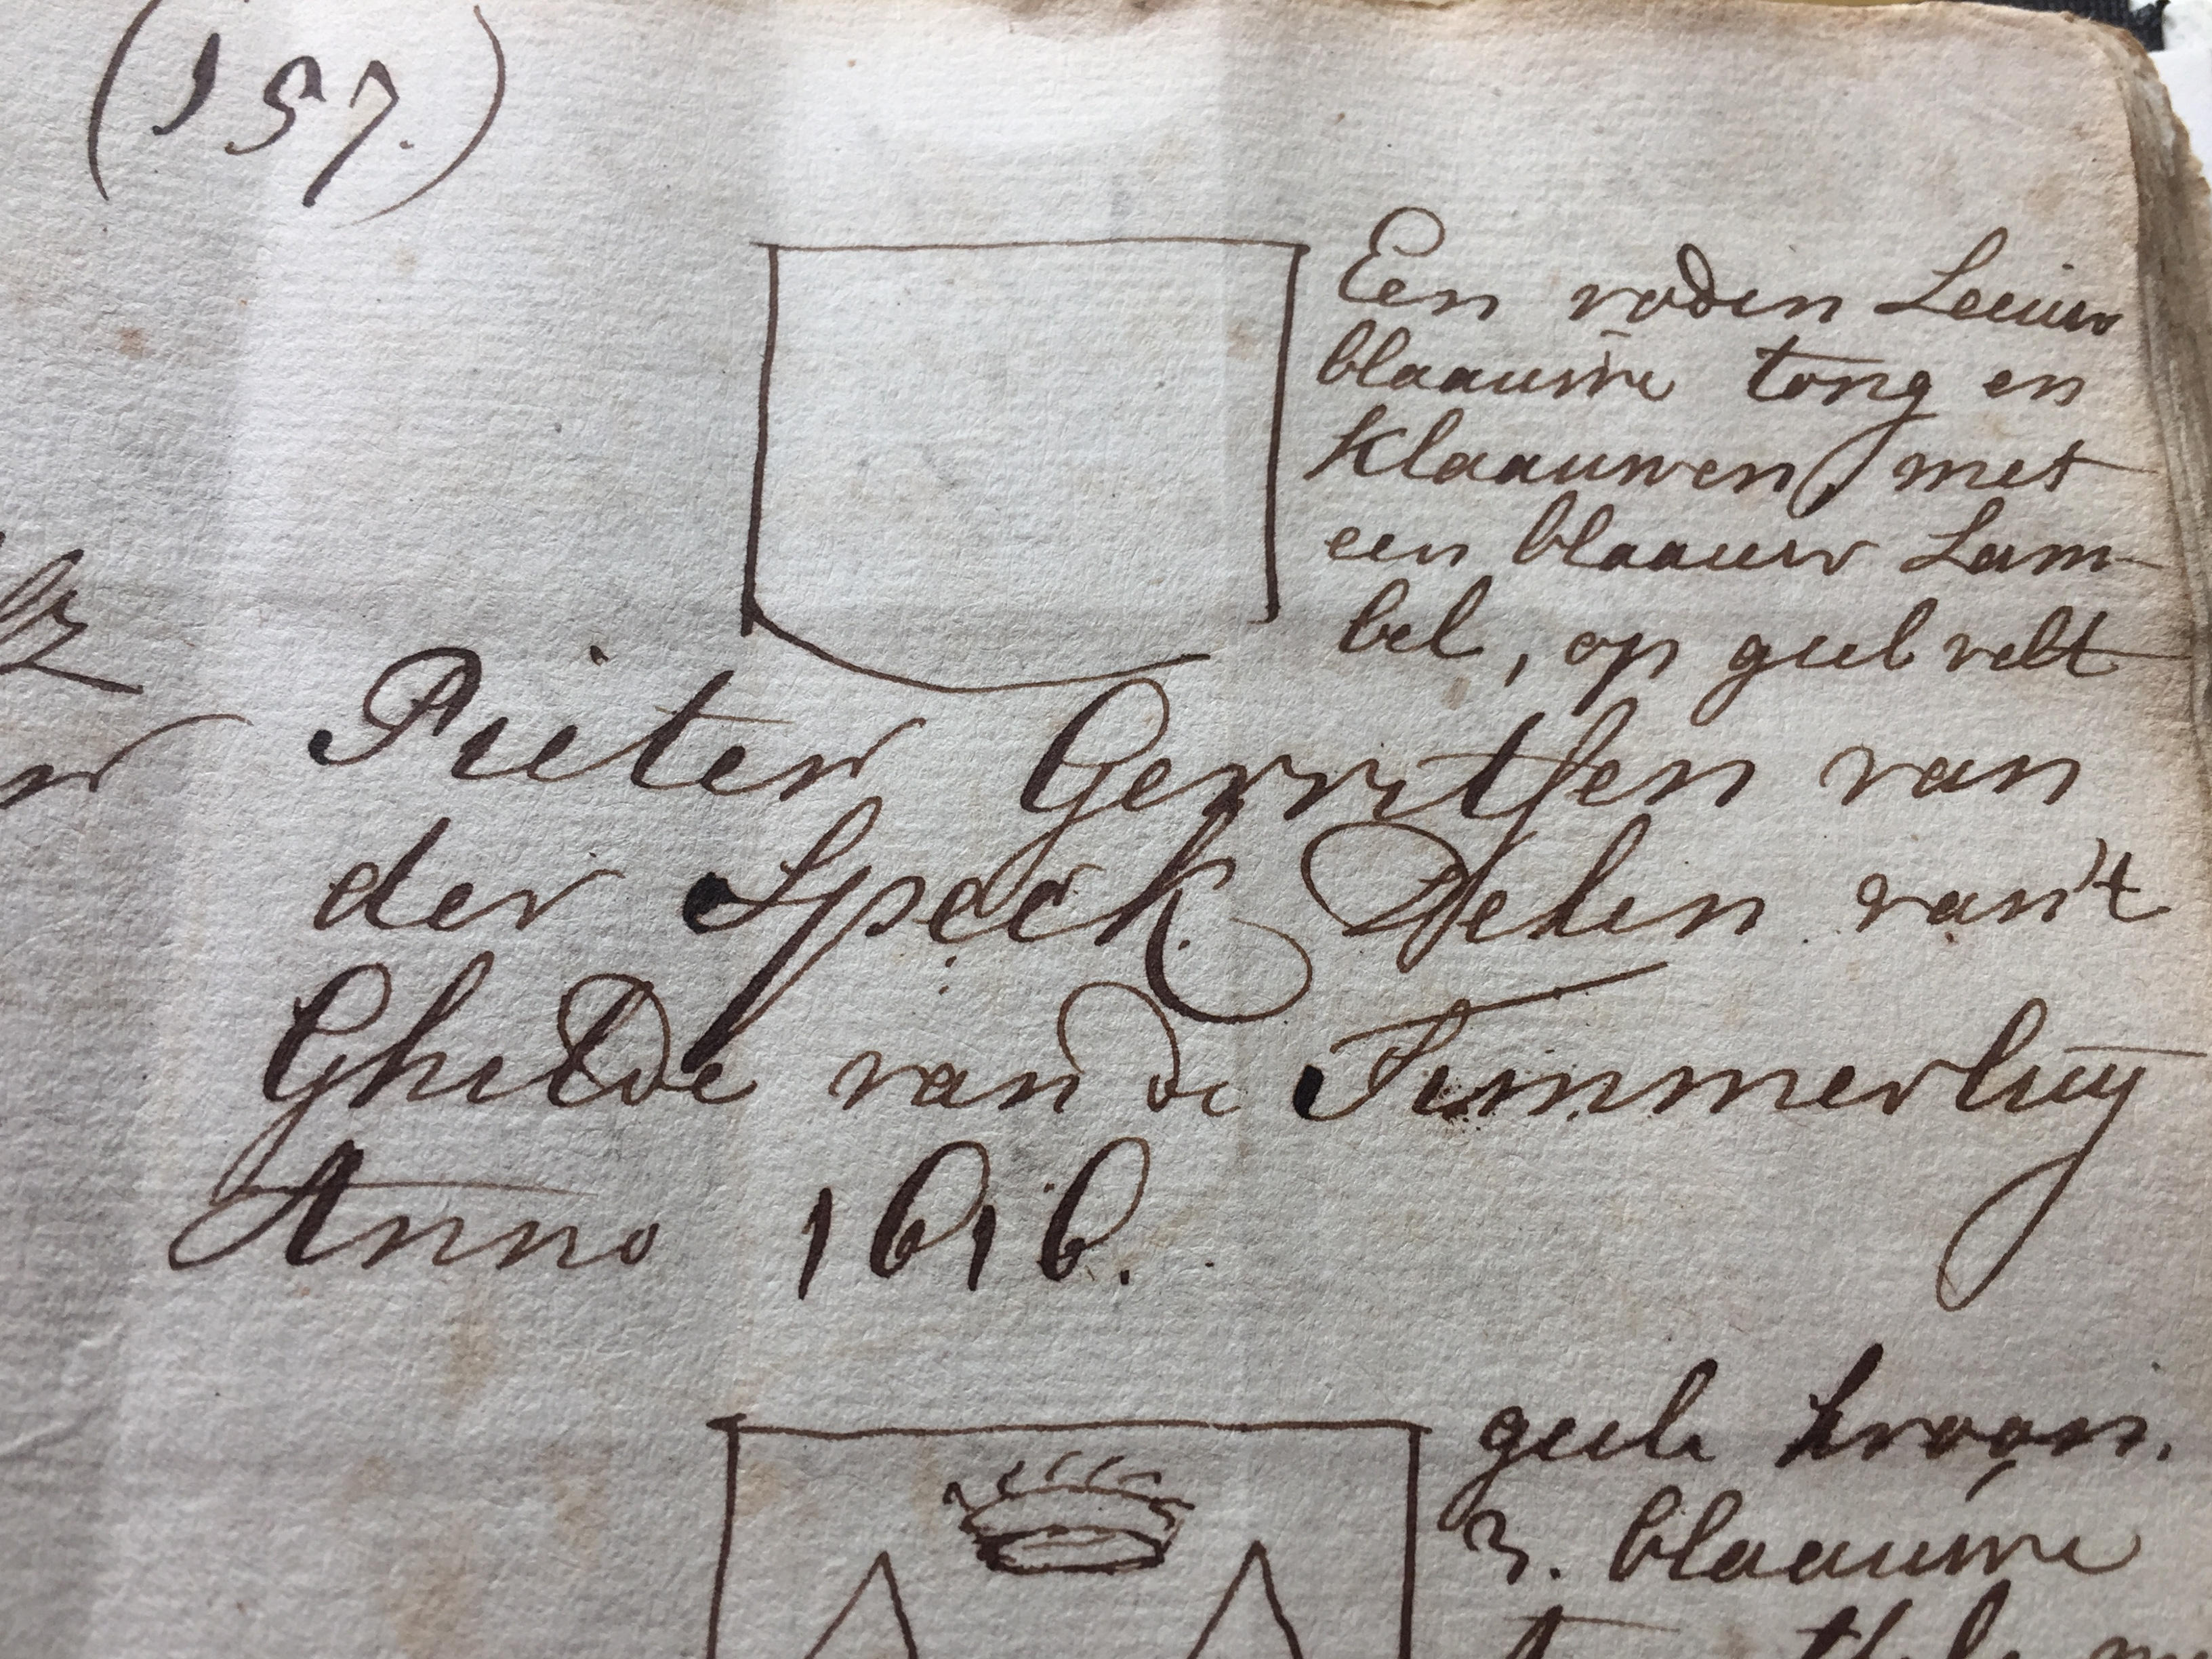 (157.)
Een roden Leeuw
blaauwe tong en
klaauwen, met
een blaauw Lam-
bel, op geel velt
Pieter Gerritsen van
der Speck. Deken van't
Ghilde van de Timmerluij
Anno 1616.
geele kroon.
3. blaauwe